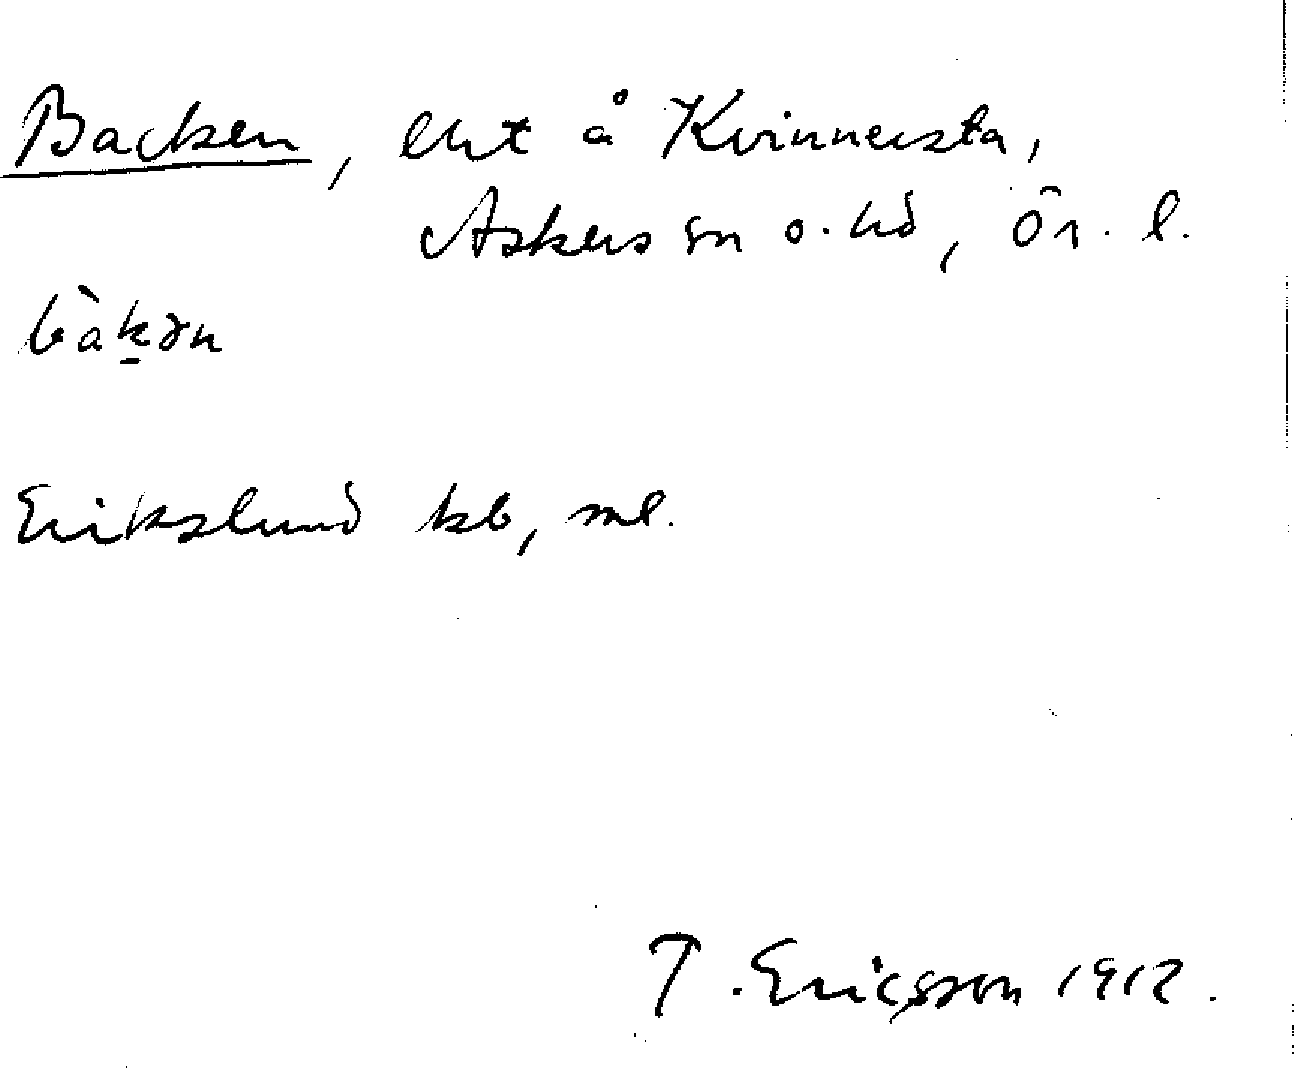 Backen, lht å Kvinnersta,
Askers sn o. hd, Ör. l.
bàk̠ən
Erikslund kb, ml.
T. Ericsson 1912.